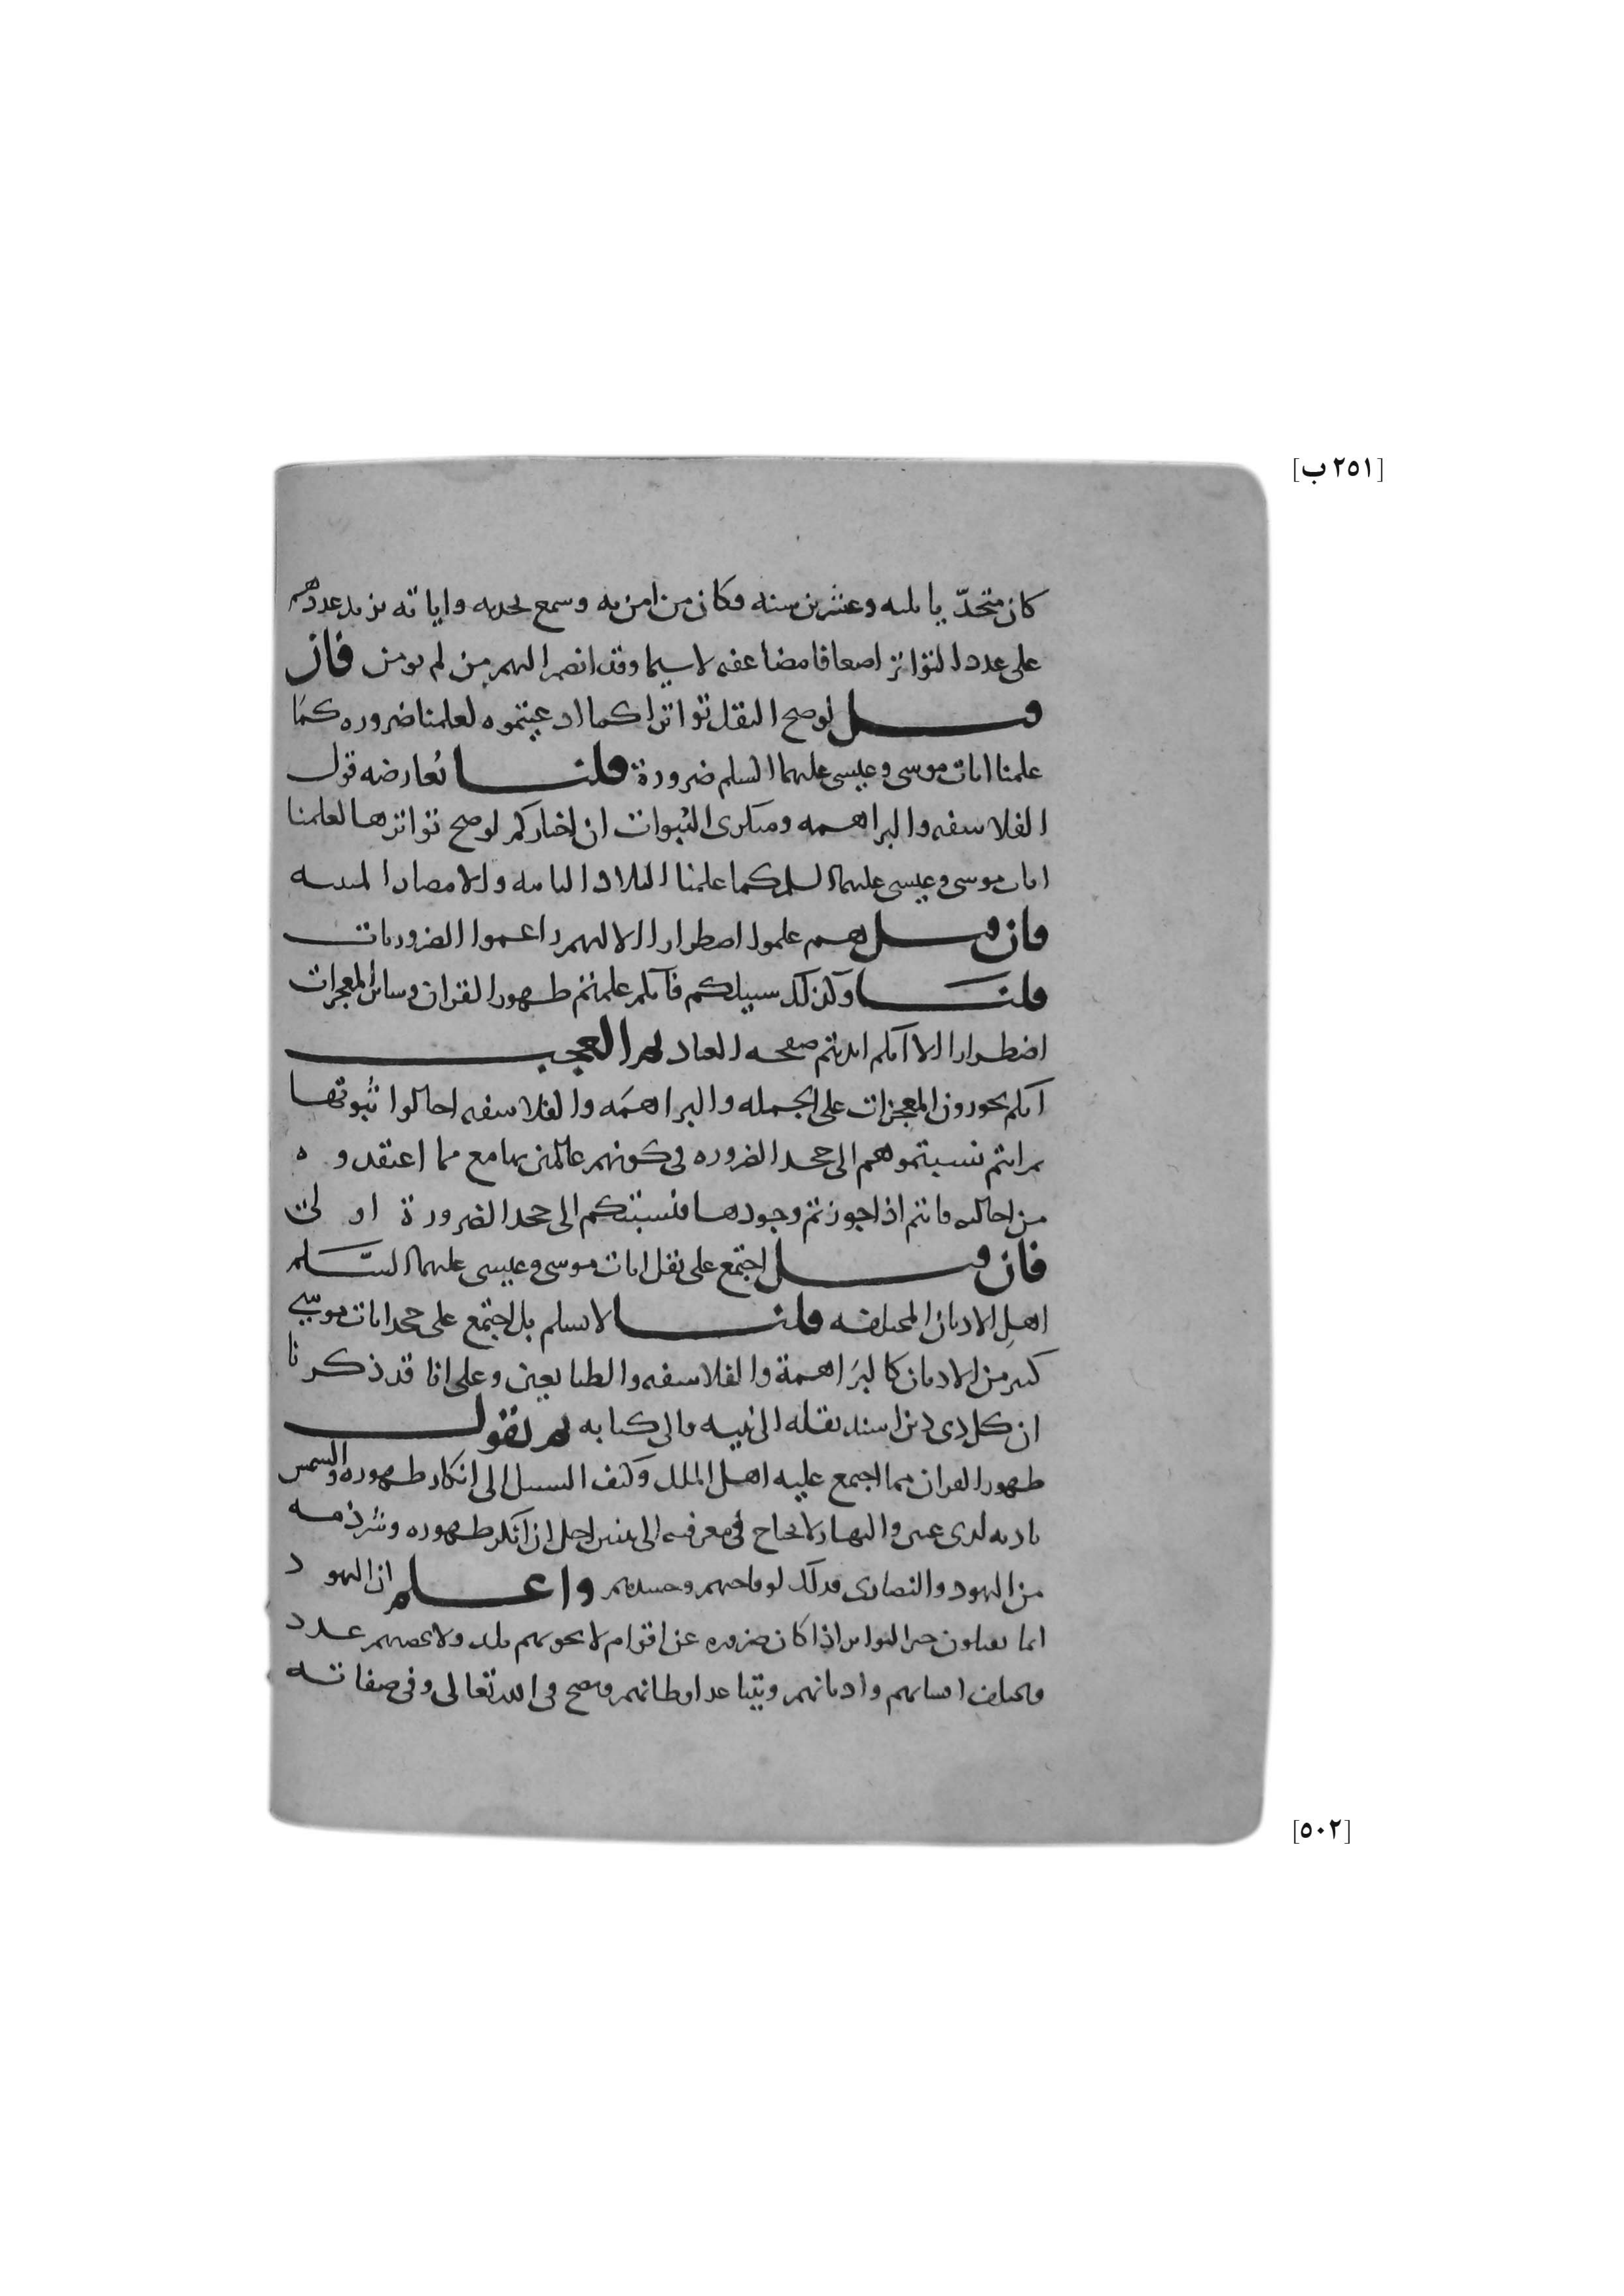 [٢٥١ ب]
كان متحدّيا بلبه وعشرين سنه وكان من امن به وسمع تحديه واياته يزيد عددهم
على عدد التواتر اضعافا مضاعفه لاسيما وقد انضم اليهم من لم يومن فان
قيل لو صح النقل تواترا كما ادعيتموه لعلمنا ضروره كما
علمنا ايات موسى وعيسى عليهما السلم ضرورة قلنا نعارضه بقول
الفلاسفه والبراهمه ومنكرى النبوات ان اخباركم لو صح تواترها لعلمنا
ايات موسى وعيسى عليهما السلم كما علمنا البلاد النايه والامصار
فان قيل هم علموا اضطرارا الا انهم راغموا الضروريات
قلنا وكذلك سبيلكم فانكم علمتم ظهور القران وساير المعجزات
اضطرارا الا انكم ابديتم صفحه العناد ثم العجب
انكم تجوزون المعجزات على الجمله والبراهمه والفلاسفه احالوا ثبوتها
ثم انتم نسبتموهم الى جحد الضروره فى كونهم عالمين بها مع ما اعتقدوه
من احالته فانتم اذا جوزتم وجودها فنسبتكم الى جحد الضرورة اولى
فان قيل اجتمع على نقل ايات موسى وعيسى عليهما السلم
اهل الاديان المختلفه قلنا لا نسلم بل اجتمع على جحد ايات موسى
كثير من الاديان كالبراهمة والفلاسفه والطبايعين وعلى انا قد ذكرنا
ان كل ذى دين اسند نقله الى نبيه والى كتابه ثم نقول
ظهور القران مما اجمع عليه اهل الملل وكيف السبيل الى انكار ظهوره والشمس
باديه لذى عين والنهار لا يحتاج فى معرفته الى اجل ان انكر ظهوره وشرذمه
من اليهود والنصارى فذلك لوقاحتهم وحسدهم واعلم ان اليهود
انما يقبلون خبر التواتر اذا كان صدوره عن اقوام لا يحويهم بلد ولا يحصيهم عدد
وتختلف انسابهم واديانهم ويتباعد اوطانهم وصح فى الله تعالى وفى صفاته
[٥٠٢]